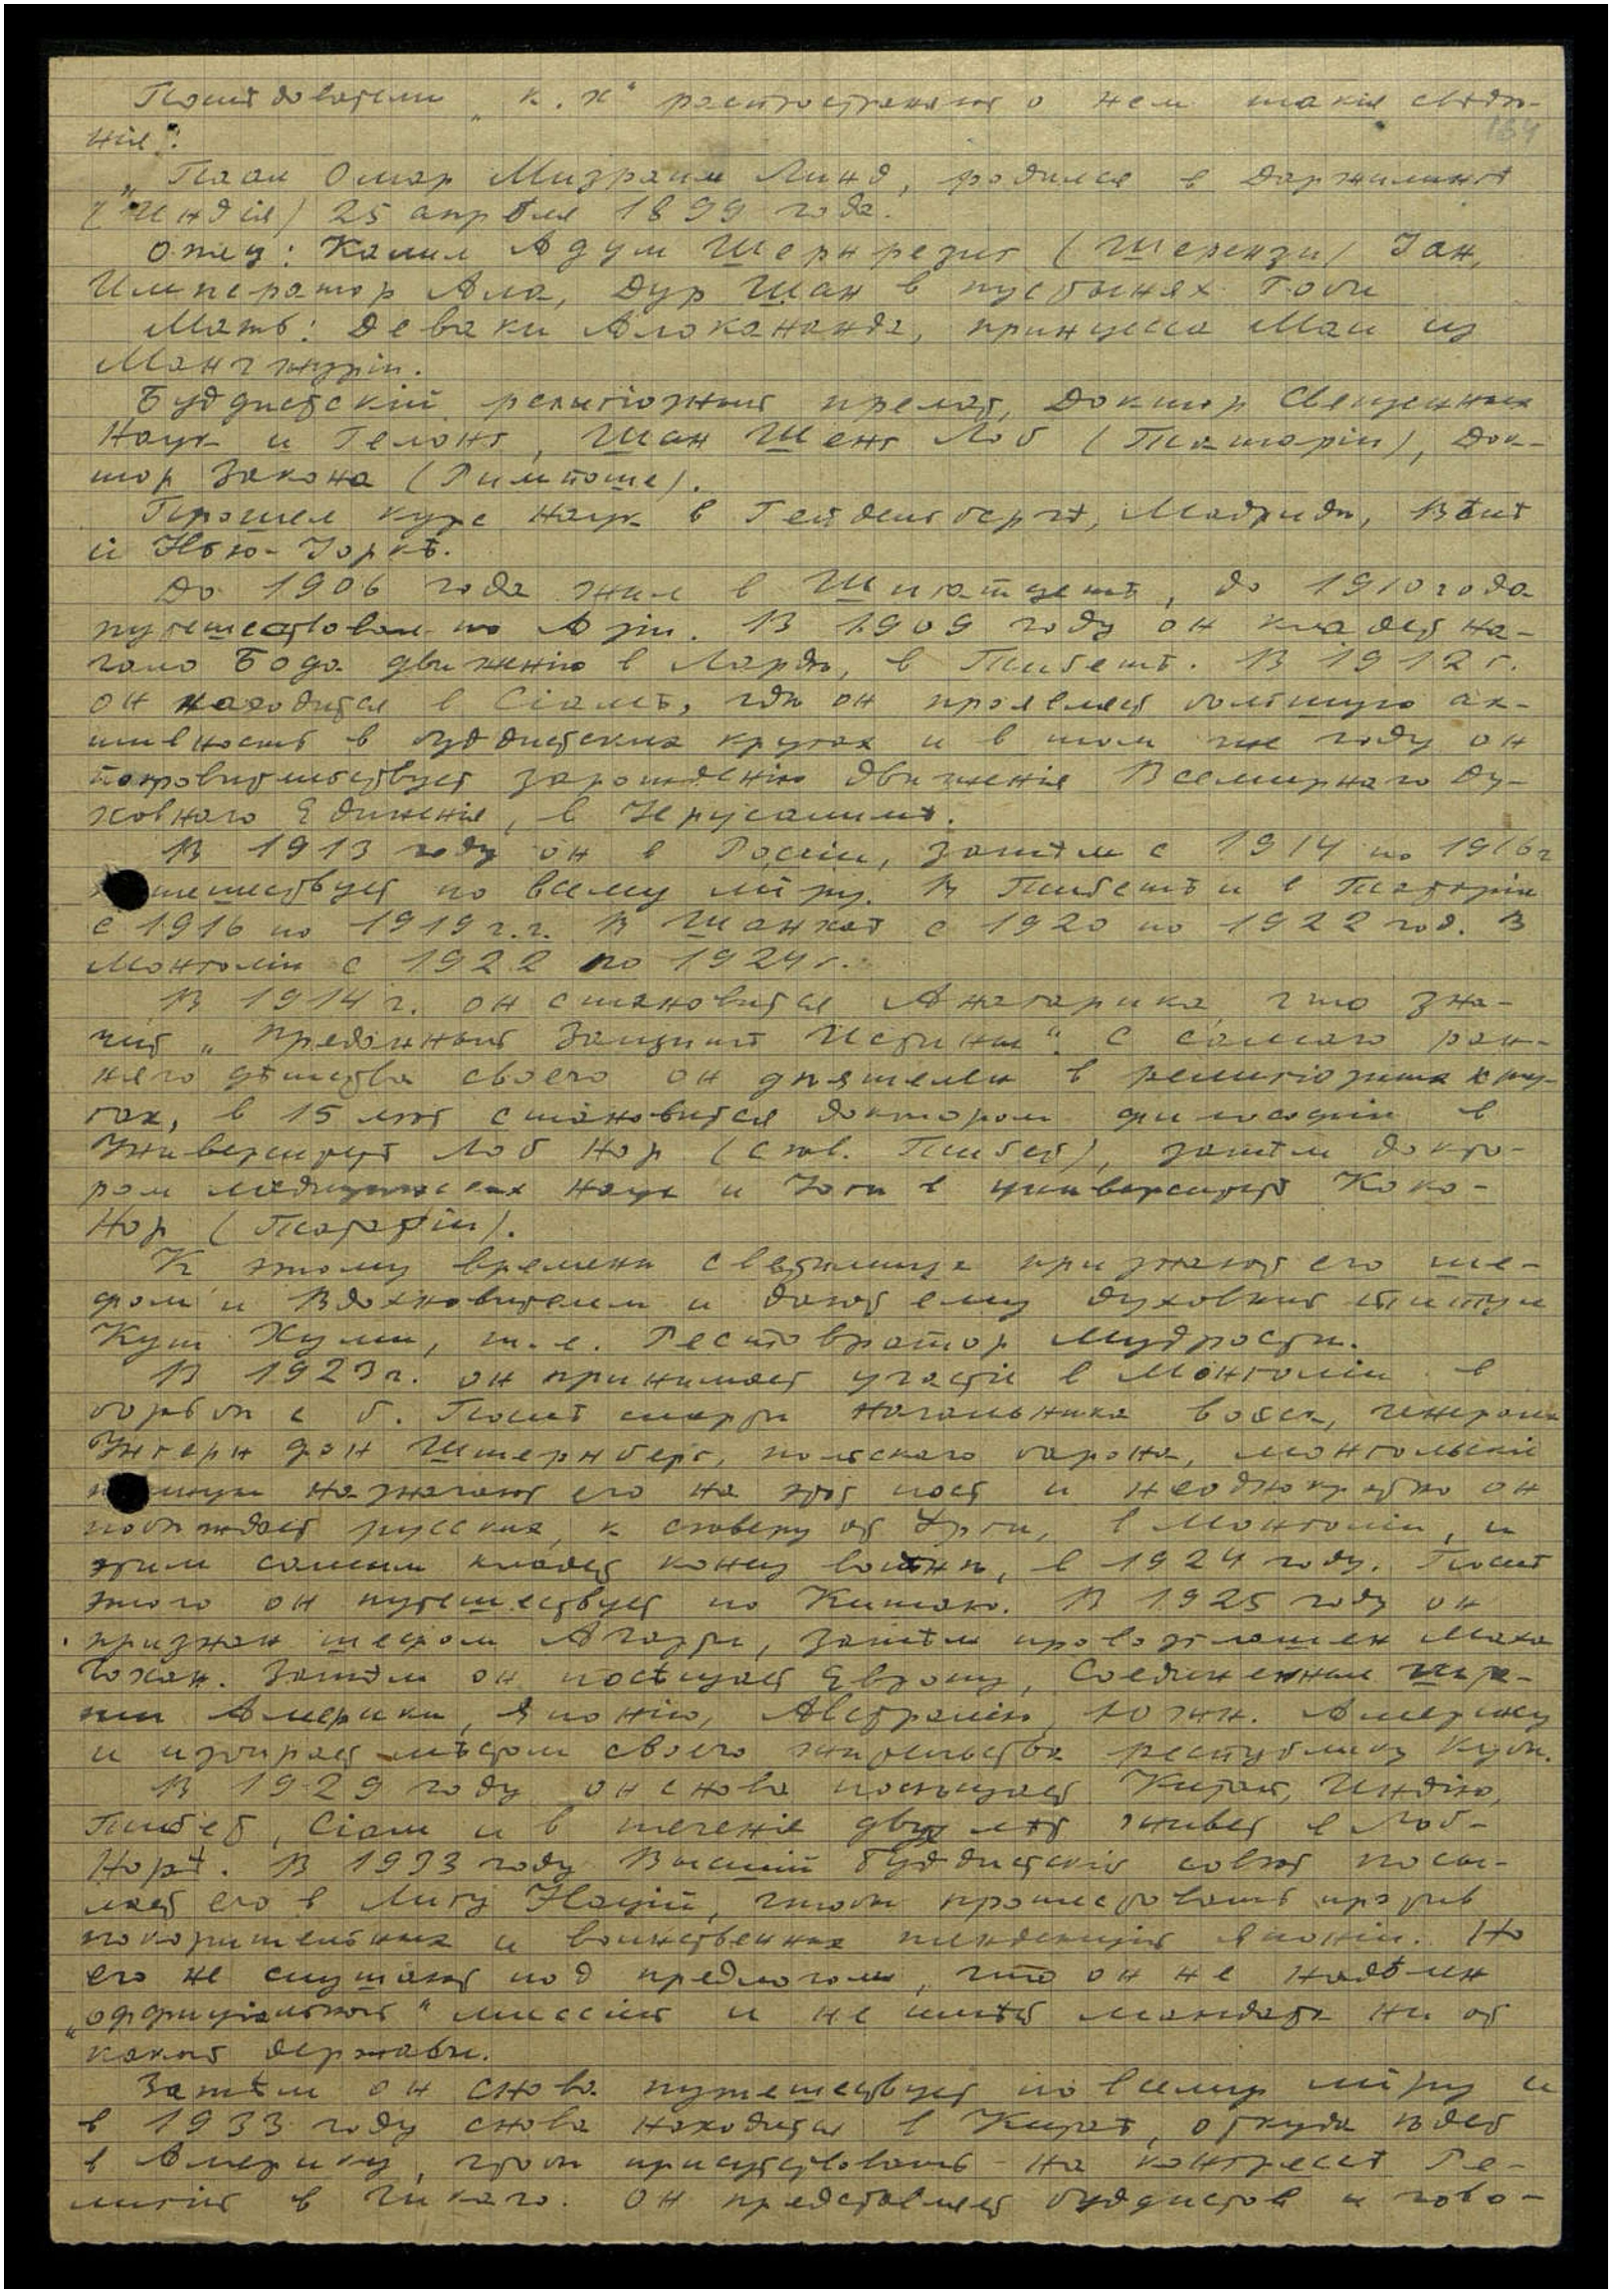 Послѣдователи „К. Х“ распространяют о нем такія свѣдѣ-
нія:
164
„Паам Омар Мизраим Линд, родился в Даржилингѣ
(Индія) 25 апрѣля 1899 года.
Отец: Камил Адум Шернрезиг (Шерензи) Ган,
Император Ала, Дур Шан в пустынях Гоби
Мать: Деваки Алокананда, принцесса Маи из
Манчжуріи.
Буддистскій религіозный прелат, Доктор Священных
Наук и Гелонг, Шан Шенг Лоб (Татаріи), Док-
тор Закона (Римпоше).
Прошел курс наук в Гейдельбергѣ, Мадридѣ, Вѣнѣ
и Нью-Іоркѣ.
До 1906 года жил в , до 1910 года
путешествовал по Азіи. В 1909 году он кладет на-
чало Бодо движенію в , в Тибетѣ. В 1912 г.
он находится в Сіамѣ, гдѣ он проявляет большую ак-
тивность в буддистских кругах и в том же году он
покровительствует зарожденію движенія Всемирнаго Ду-
ховнаго Единенія, в Іерусалимѣ.
В 1913 году он в Россіи, затѣм с 1914 по 1916 г
путешествует по всему міру. В Тибетѣ и в Татаріи
с 1916 по 1919 г.г. В Шанхаѣ с 1920 по 1922 год. В
Монголіи с 1922 по 1924 г.
В 1914 г. он становится Анагарика, что зна-
чит „Преданный Защитѣ Истины“. С самаго ран-
няго дѣтства своего он дѣятелен в религіозных кру-
гах, в 15 лѣт становится доктором философіи в
Университетѣ Лоб Нор (сѣв. Тибет), затѣм докто-
ром медицинских наук и Йоги в университетѣ Коко-
Нор (Татаріи).
К этому времени святилища признают его ше-
фом и Вдохновителем и дают ему духовный титул
Кут Хуми, т.е. Реставратор Мудрости.
В 1923 г. он принимает участіе в Монголіи в
борьбѣ с б. Послѣ смерти начальника войск, генерала
Унгерн фон Штернберг, польскаго барона, монгольскіе
назначают его на этот пост и неоднократно он
побѣждает русских, к сѣверу от Урги, в Монголіи, и
этим самым кладет конец войнѣ, в 1924 году. Послѣ
этого он путешествует по Китаю. В 1925 году он
признан шефом Агарты, затѣм провозглашен Маха
Чохан. Затѣм он посѣщает Европу, Соединенные Шта-
ты Америки, Японію, Австралію, Южн. Америку
и избирает мѣстом своего жительства республику Кубу.
В 1929 году он снова посѣщает Китай, Индію,
Тибет, Сіам и в теченіе двух лѣт живет в Лоб-
Норѣ. В 1933 году Высшій буддистскій совѣт посы-
лает его в Лигу Націй, чтобы протестовать против
покорительных и воинственных тенденцій Японіи. Но
его не слушают под предлогом, что он не надѣлен
„оффиціальной“ миссіей и не имѣет мандата ни от
какой державы.
Затѣм он снова путешествует по всему міру и
в 1933 году снова находится в Китаѣ, откуда ѣдет
в Америку, чтобы присутствовать на конгрессѣ Ре-
лигій в Чикаго. Он представляет буддистов и гово-